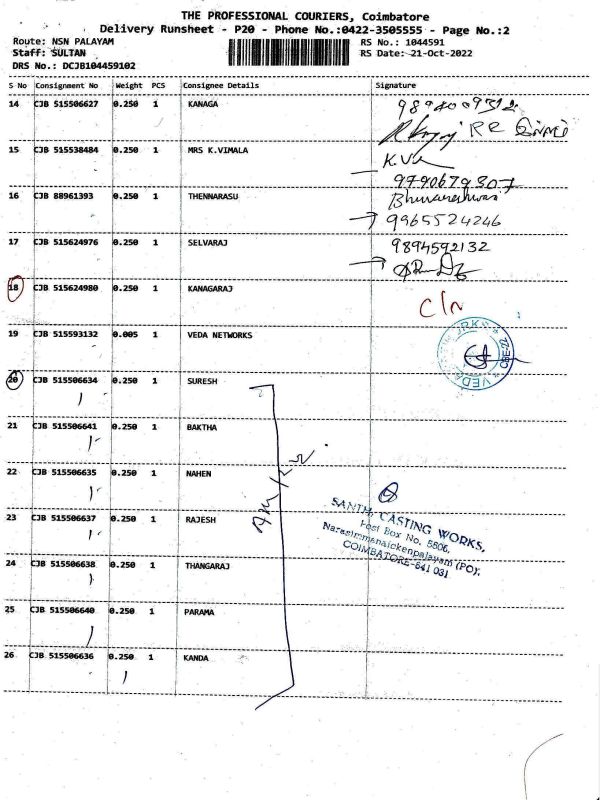 THE PROFESSIONAL COURIERS, Coimbatore
Delivery Runsheet - P20 - Phone No.:0422-3505555 - Page No.:2
Route: NSN PALAYAM RS No.: 1044591
Staff: SULTAN RS Date: 21-Oct-2022
DRS No.: DCJB104459102
S No Consignment No Weight PCS Consignee Details Signature
14 CJB 515506627 0.250 1 KANAGA
15 CJB 515538484 0.250 1 MRS K.VIMALA
9790679307
16 CJB 88961393 0.250 1 THENNARASU Bhuvaneshwari
9965524246
17 CJB 515624976 0.250 1 SELVARAJ 9894592132
18 CJB 515624980 0.250 1 KANAGARAJ
19 CJB 515593132 0.005 1 VEDA NETWORKS
20 CJB 515506634 0.250 1 SURESH
21 CJB 515506641 0.250 1 BAKTHA
22 CJB 515506635 0.250 1 NAHEN
23 CJB 515506637 0.250 1 RAJESH
24 CJB 515506638 0.250 1 THANGARAJ
25 CJB 515506640 0.250 1 PARAMA
26 CJB 515506636 0.250 1 KANDA
CASTING WORKS,
Post Box No. 5806,
Narasimmanaickenpalayam (PO),
COIMBATORE-641 031